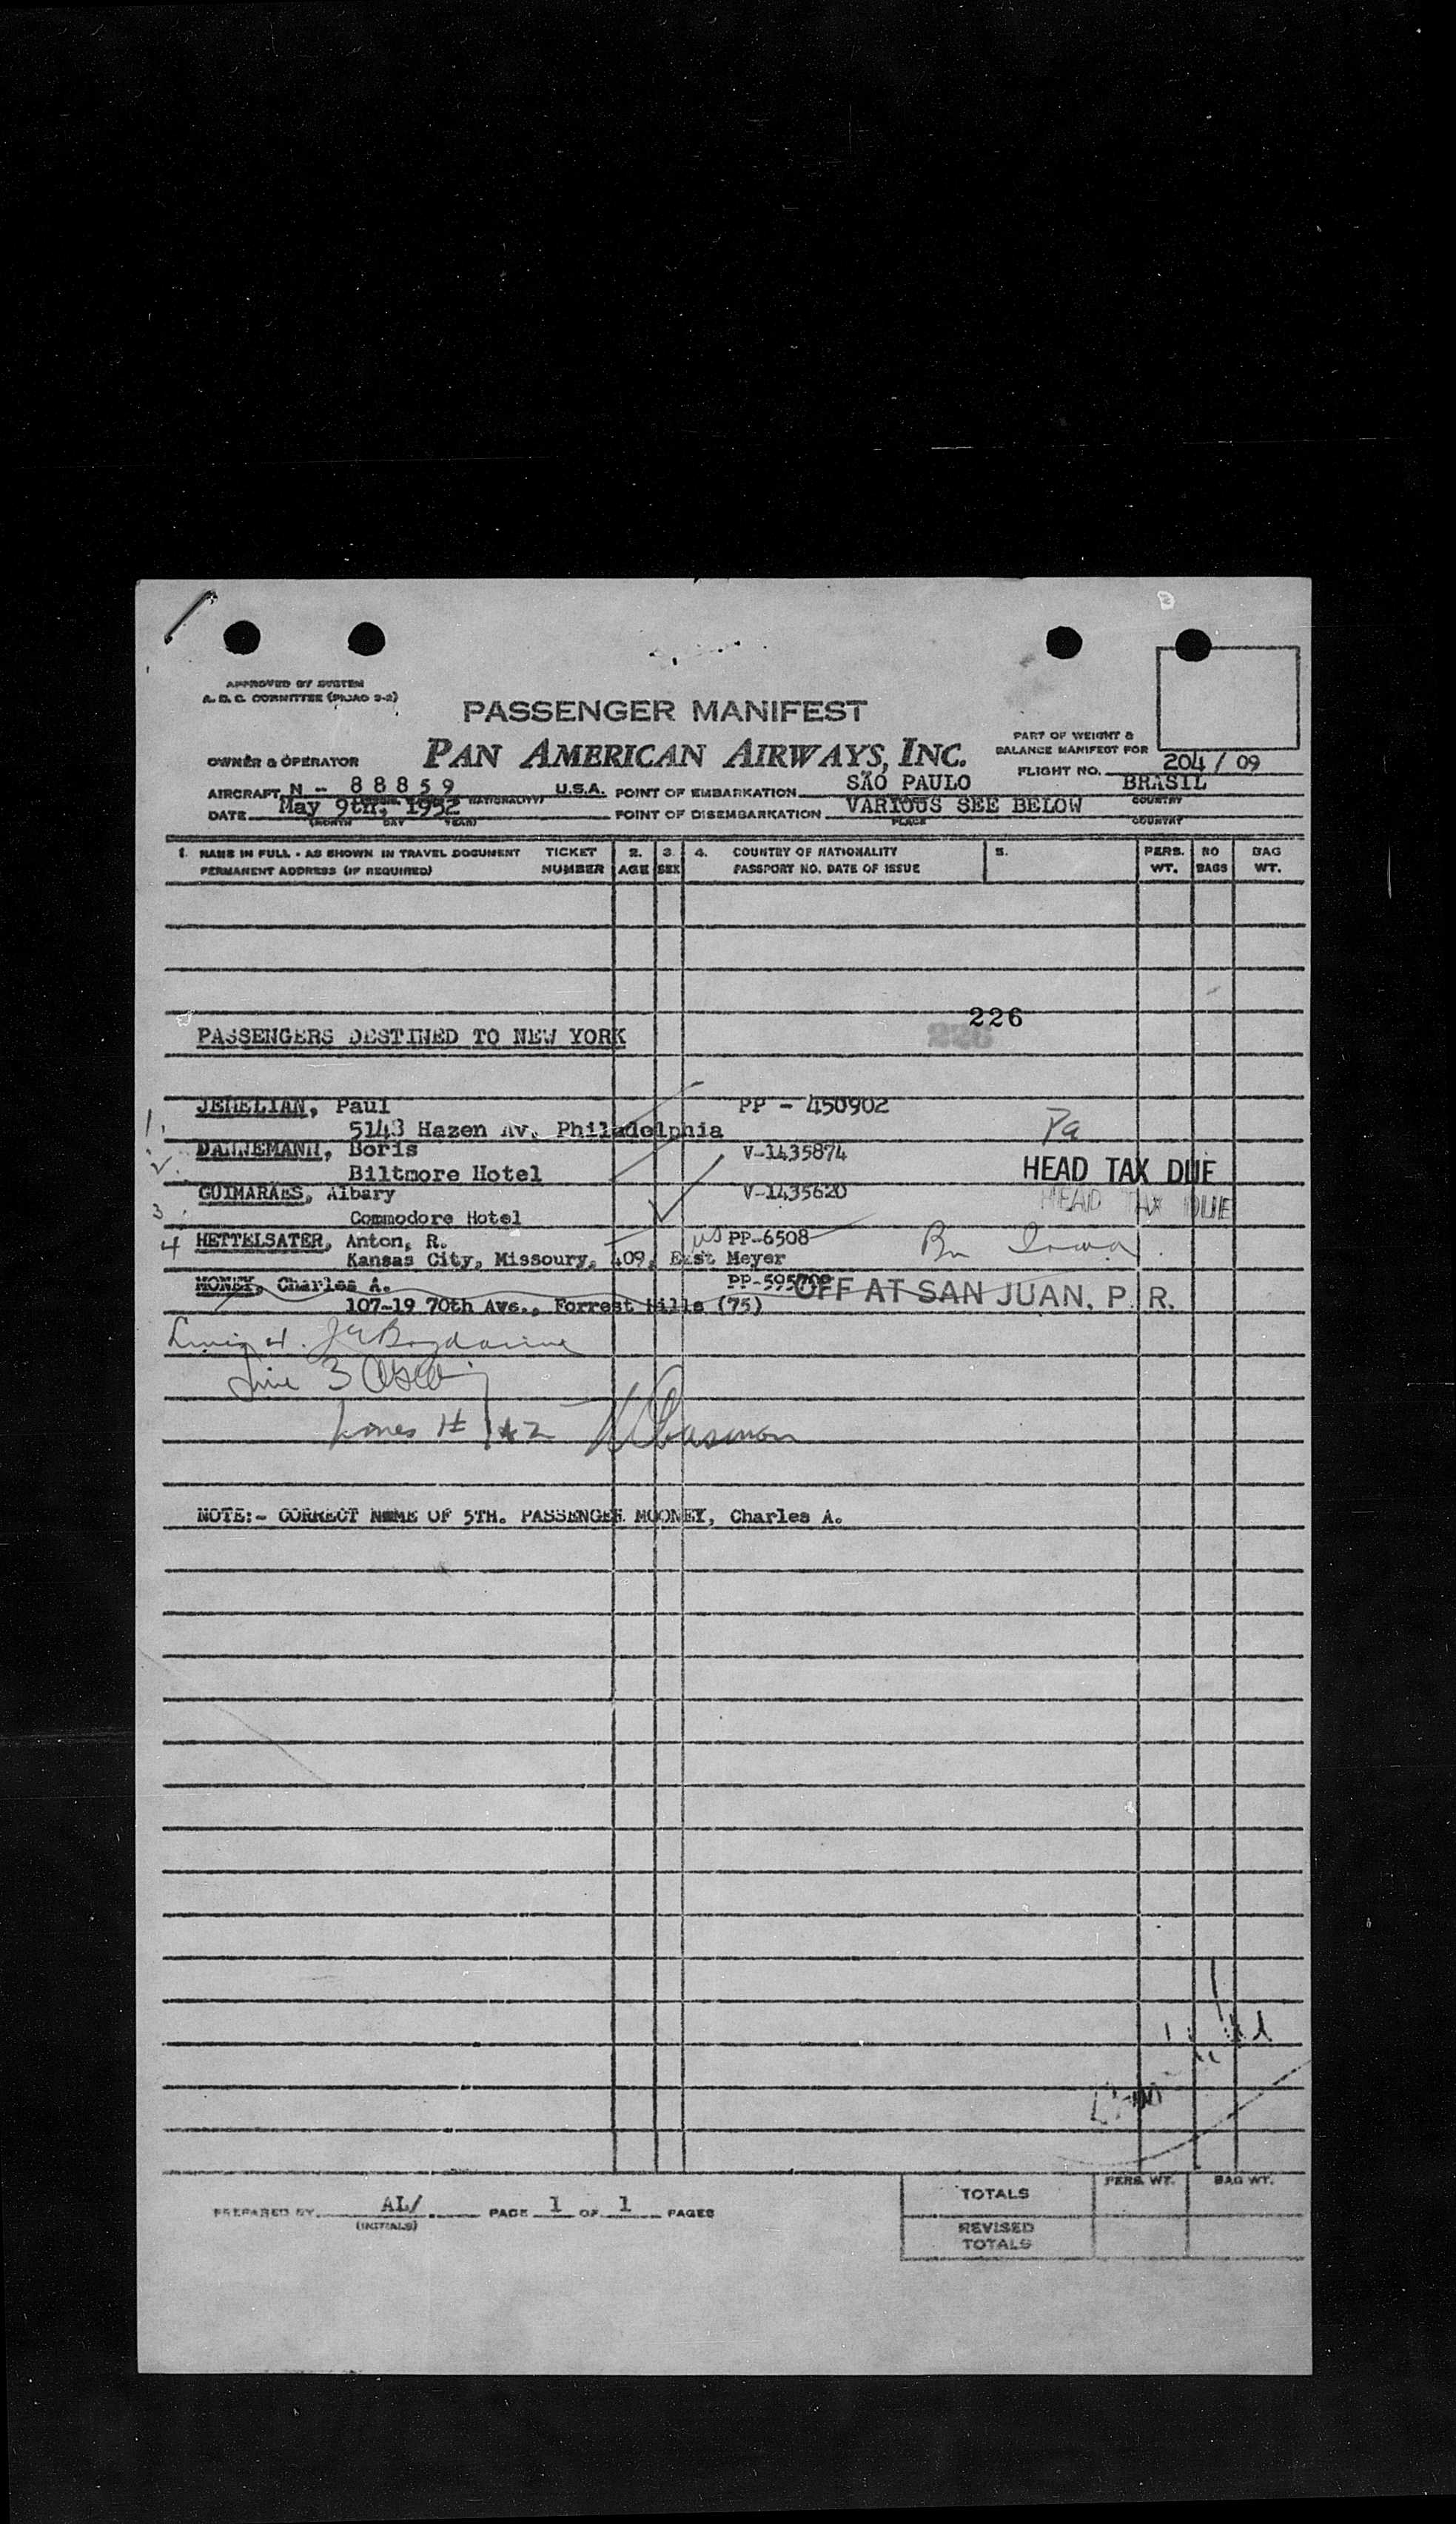 APPROVED BY SYSTEM
A. D. C. COMMITTEE (PICAO 9-2)
PASSENGER MANIFEST
PART OF WEIGHT &
BALANCE MANIFEST FOR
OWNER & OPERATOR PAN AMERICAN AIRWAYS, INC.
FLIGHT NO. 204 / 09
AIRCRAFT N - 88859 (NATIONALITY) U.S.A. POINT OF EMBARKATION SÃO PAULO BRASIL
COUNTRY
DATE May 9th, 1952 POINT OF DISEMBARKATION VARIOUS SEE BELOW
(MONTH DAY YEAR) PLACE COUNTRY
1. NAME IN FULL - AS SHOWN IN TRAVEL DOCUMENT TICKET 2. 3. 4. COUNTRY OF NATIONALITY 5. PERS. NO BAG
PERMANENT ADDRESS (IF REQUIRED) NUMBER AGE SEX PASSPORT NO. DATE OF ISSUE WT. BAGS WT.
226
226
PASSENGERS DESTINED TO NEW YORK
JEHELIAN, Paul PP - 450902
1. 5143 Hazen Av. Philadelphia Pa
2. DANNEMANN, Boris V-1435874
Biltmore Hotel HEAD TAX DUE
GUIMARAES, Albary V-1435620
HEAD TAX DUE
3. Commodore Hotel
4 HETTELSATER, Anton, R. US PP-6508 Bn Iowa
Kansas City, Missoury, 409, East Meyer
MONEY, Charles A. OFF AT SAN JUAN, P. R.
107-19 70th Ave., Forrest Hills (75)
Line 3
Lines # 1 & 2
NOTE:- CORRECT NAME OF 5TH. PASSENGER MOONEY, Charles A.
PREPARED BY AL/ PAGE 1 OF 1 PAGES
(INITIALS)
PERS. WT. BAG WT.
TOTALS
REVISED
TOTALS